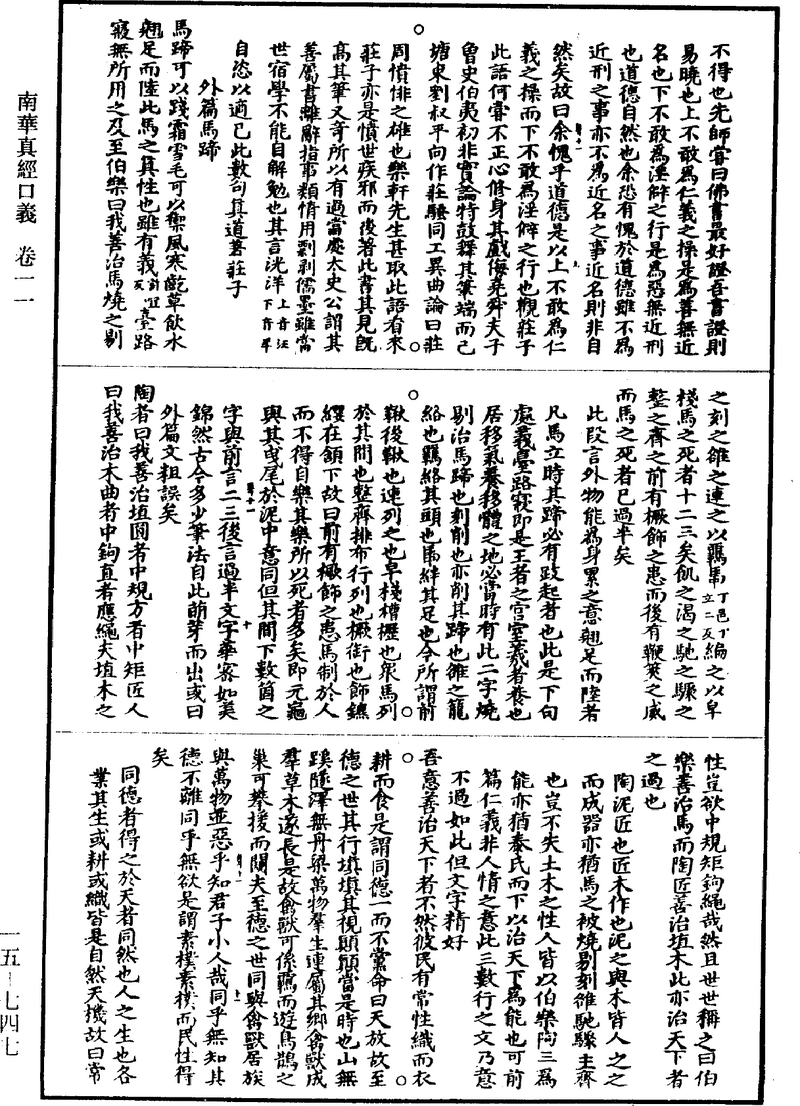 南華真經口義 卷一一
不得也先師嘗曰佛書最好證吾書證則
易曉也上不敢為仁義之操是為善無近
名也下不敢為淫僻之行是為惡無近刑
也道德自然也余恐有愧於道德雖不為
近刑之事亦不為近名之事近名則非自
然矣故曰余愧乎道德是以上不敢為仁
義之操而下不敢為淫僻之行也觀莊子
此語何嘗不正心修身其戲侮堯舜夫子
曾史伯夷初非實論特鼓舞其筆端而已
塘東劉叔平向作莊騷同工異曲論曰莊
周憤悱之雄也樂軒先生甚取此語看來
莊子亦是憤世疾邪而後著此書其見既
高其筆又奇所以有過當處太史公謂其
善屬書離辭指事類情用剽剥儒墨雖當
世宿學不能自解勉也其言洸洋上音汪下音羊
自恣以適己此數句真道著莊子
外篇馬蹄
馬蹄可以踐霜雪毛可以禦風寒齕草飲水
翹足而陸此馬之真性也雖有義臺路
寢無所用之及至伯樂曰我善治馬燒之剔
之刻之雒之連之以羈馽丁邑丁立二反編之以皁
棧馬之死者十二三矣飢之渴之馳之驟之
整之齊之前有橛飾之患而後有鞭筴之威
而馬之死者已過半矣
此段言外物能為身累之意翹足而陸者
凡馬立時其蹄必有跂起者也此是下句
處義臺路寢即是王者之宮室義者養也
居移氣養移體之地必當時有此二字燒
剔治馬蹄也刻削也亦削其蹄也雒之籠
絡也羈絡其頭也馽絆其足也今所謂前
靽後靽也連列之也皁棧槽櫪也衆馬列
於其間也整齊排布行列也橛銜也飾鑣
纓在頷下故曰前有橛飾之患馬制於人
而不得自樂其樂所以死者多矣即元龜
與其曳尾於泥中意同但其間下數箇之
字與前言二三後言過半文字華密如美
錦然古今多少筆法自此萌芽而出或曰
外篇文粗誤矣
陶者曰我善治埴圓者中規方者中矩匠人
曰我善治木曲者中鉤直者應繩夫埴木之
性豈欲中規矩鉤繩哉然且世世稱之曰伯
樂善治馬而陶匠善治埴木此亦治天下者
之過也
陶泥匠也匠木作也泥之與木皆人之之
而成器亦猶馬之被燒剔刻雒馳驟主齊
也豈不失土木之性人皆以伯樂陶三為
能亦猶秦氏而下以治天下為能也可前
篇仁義非人情之意此三數行之文乃意
不過如此但文字精好
吾意善治天下者不然彼民有常性織而衣
耕而食是謂同德一而不黨命曰天放故至
德之世其行填填其視顛顛當是時也山無
蹊隧澤無舟梁萬物羣生連屬其鄉禽獸成
羣草木遂長是故禽獸可係羈而遊鳥鵲之
巢可攀援而闚夫至德之世同與禽獸居族
與萬物並惡乎知君子小人哉同乎無知其
德不離同乎無欲是謂素樸素樸而民性得
矣
同德者得之於天者同然也人之生也各
業其生或耕或織皆是自然天機故曰常
一五－七四七